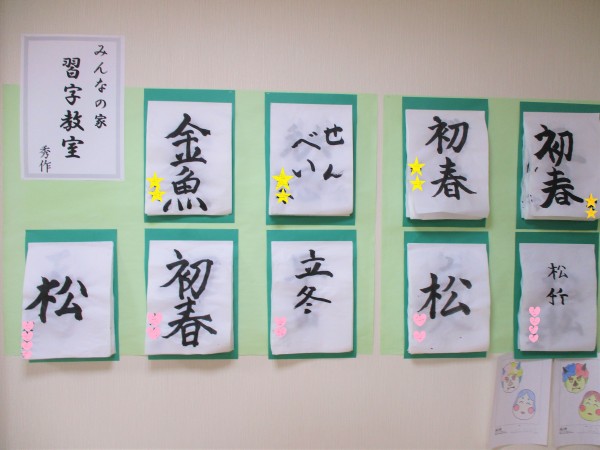 みんなの家
習字教室
秀作
初春
初春
せんべい
金魚
松竹
松
立冬
初春
松